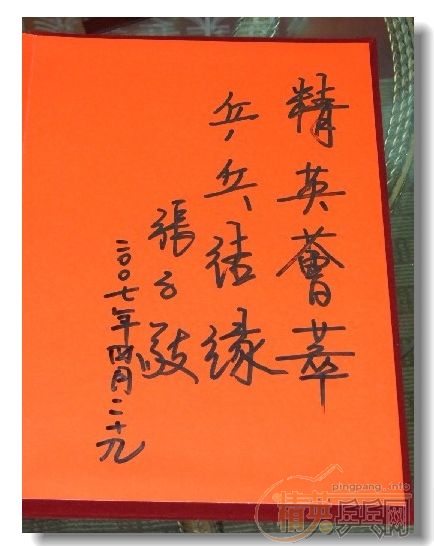 精英薈萃
乒乓结缘
張
二〇〇七年四月二十九
pingpang.info
精英乒乓网